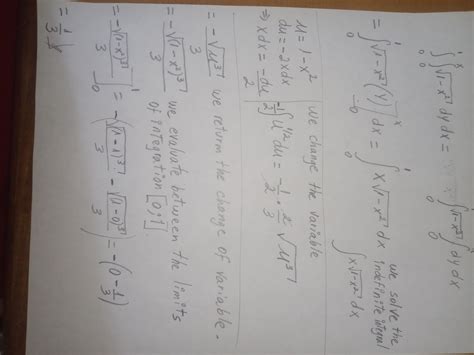 ∫₀¹ ∫₀ˣ √(1-x²) dy dx = ∫₀ √(1-x²) dy dx
= ∫₀¹ √(1-x²) (y)|₀ˣ dx = ∫₀¹ x √(1-x²) dx we solve the indefinite integral
∫ x √(1-x²) dx
u = 1-x² We change the variable
du = -2xdx
⇒ xdx = -du/2
-1/2 ∫ u^(1/2) du = -1/2 · 2/3 √(u³)
= -√(u³)/3 we return the change of variable.
= -√((1-x²)³)/3 we evaluate between the limits
of integration [0;1]
= -√((1-x²)³)/3 |₀¹ = -(√((1-1)³)/3 - √((1-0)³)/3) = -(0 - 1/3)
= 1/3